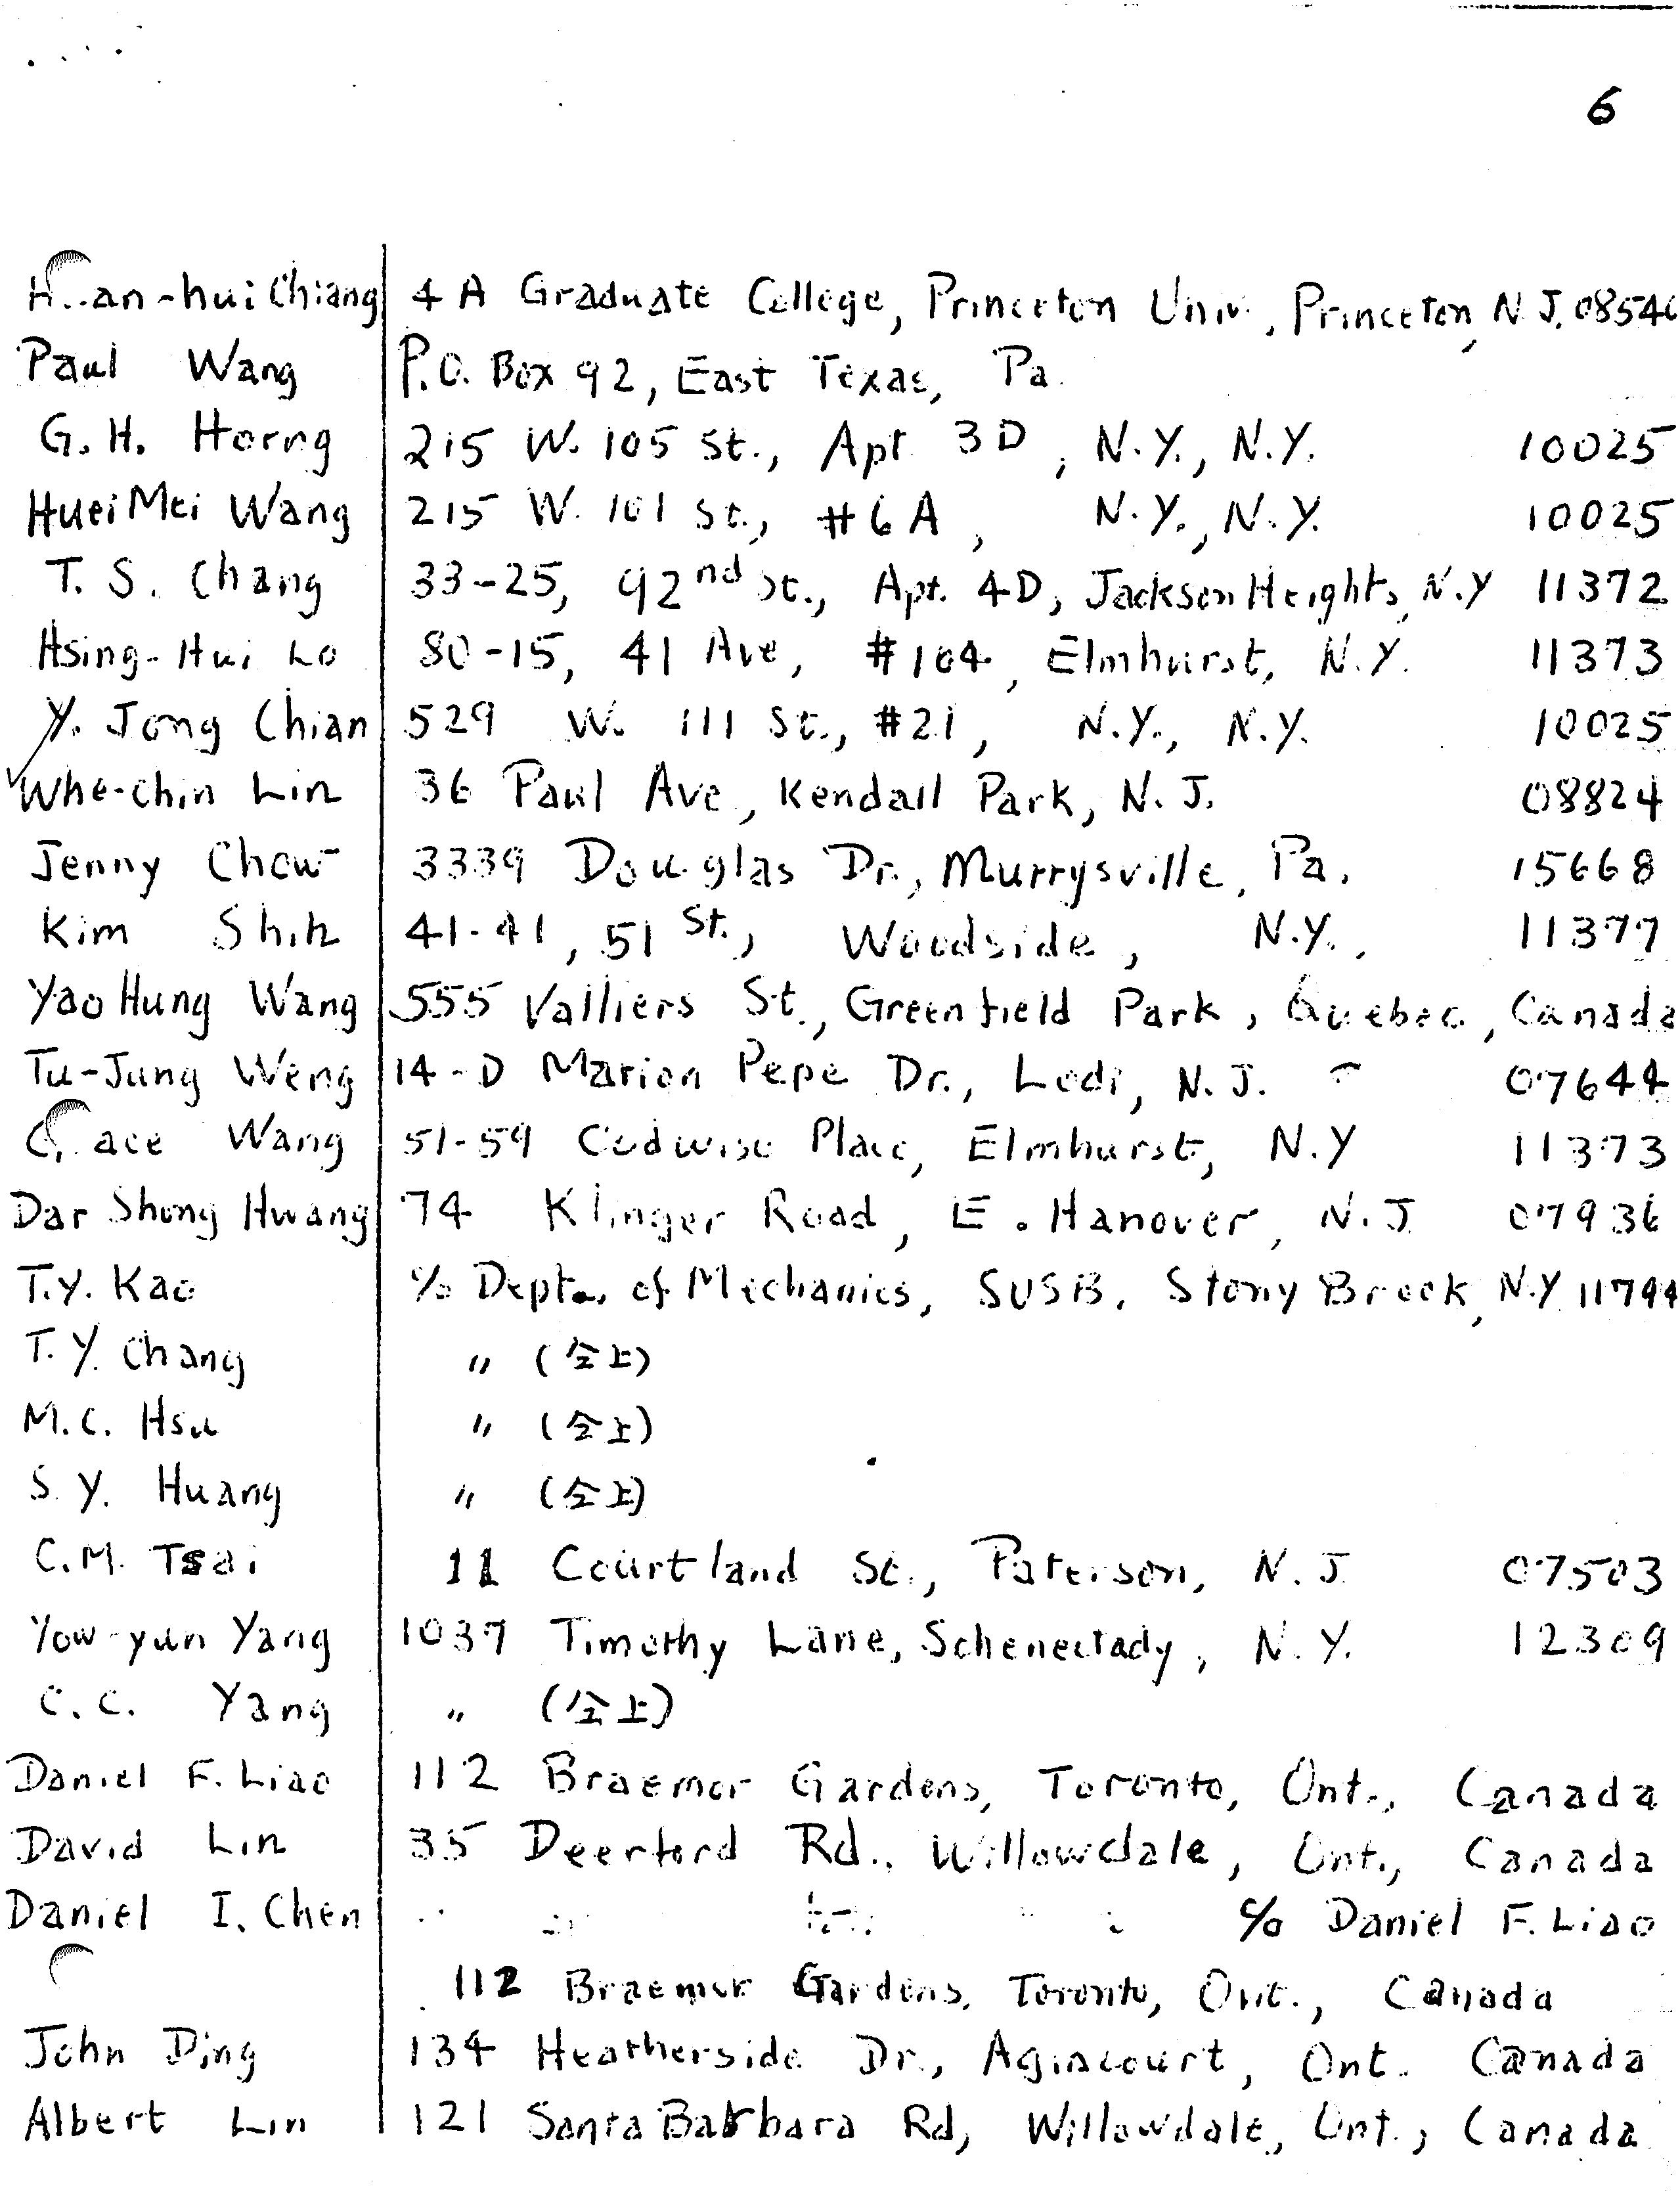 6
H..an-hui Chiang 4A Graduate College, Princeton Univ., Princeton, N.J. 08540
Paul Wang P.O. Box 92, East Texas, Pa.
G. H. Horng 215 W. 105 St., Apt. 3D, N.Y., N.Y. 10025
Huei Mei Wang 215 W. 101 St., #6A, N.Y., N.Y. 10025
T. S. Chang 33-25, 92nd St., Apt. 4D, Jackson Heights, N.Y 11372
Hsing-Hui Lo 80-15, 41 Ave, #104, Elmhurst, N.Y. 11373
Y. Jong Chian 529 W. 111 St., #21, N.Y., N.Y. 10025
Whe-chin Lin 36 Paul Ave., Kendall Park, N.J. 08824
Jenny Chow 3339 Douglas Dr., Murrysville, Pa. 15668
Kim Shih 41-41, 51 St., Woodside, N.Y., 11377
Yao Hung Wang 555 Valliers St., Greenfield Park, Quebec, Canada
Tu-Jung Weng 14-D Marion Pepe Dr., Lodi, N.J. 07644
Grace Wang 51-59 Codwise Place, Elmhurst, N.Y 11373
Dar Shong Hwang 74 Klinger Road, E. Hanover, N.J. 07936
T.Y. Kao c/o Dept. of Mechanics, SUSB, Stony Brook, N.Y 11794
T.Y. Chang " (仝上)
M.C. Hsu " (仝上)
S.Y. Huang " (仝上)
C.M. Tsai 11 Courtland St., Paterson, N.J. 07503
Yow-yun Yang 1037 Timothy Lane, Schenectady, N.Y. 12309
C.C. Yang " (仝上)
Daniel F. Liao 112 Braemor Gardens, Toronto, Ont., Canada
David Lin 35 Deerford Rd., Willowdale, Ont., Canada
Daniel I. Chen c/o Daniel F. Liao
112 Braemor Gardens, Toronto, Ont., Canada
John Ding 134 Heatherside Dr., Agincourt, Ont. Canada
Albert Lin 121 Santa Barbara Rd, Willowdale, Ont., Canada